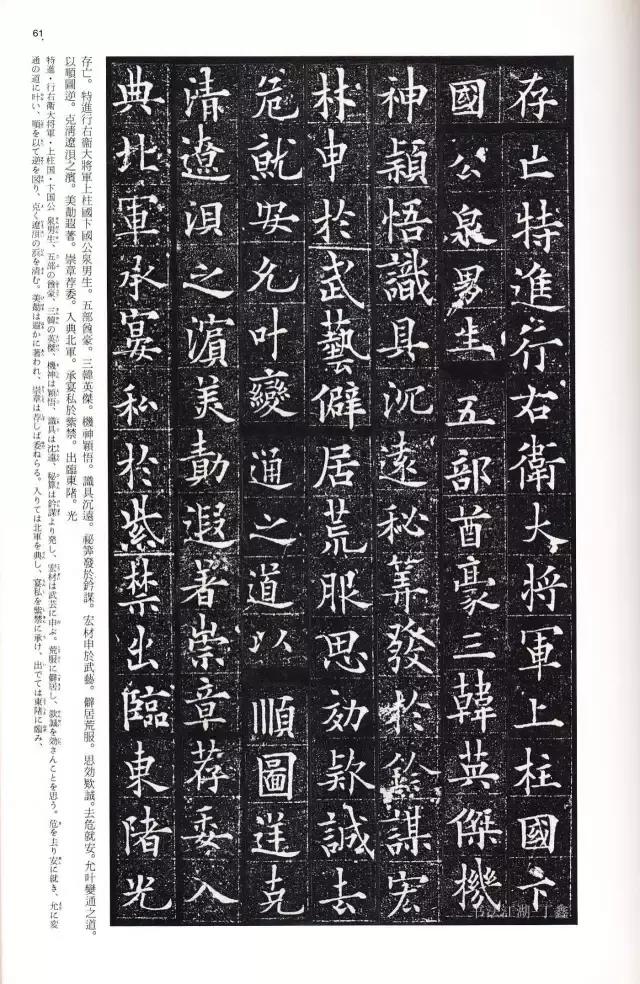 61
存亡特進行右衛大将軍上柱國卞
國公泉男生五部酋豪三韓英傑機
神穎悟識具沉遠秘筭發於鈐謀宏
材申於武藝僻居荒服思効欵誠去
危就安允叶變通之道以順圖逆克
清遼浿之濱美勣遐著崇章荐委入
典北軍承宴私於紫禁出臨東陼光
存亡。特進行右衛大將軍上柱國卞國公泉男生。五部酋豪。三韓英傑。機神穎悟。識具沉遠。祕筭發於鈐謀。宏材申於武藝。僻居荒服。思効欵誠。去危就安。允叶變通之道。
以順圖逆。克淸遼浿之濱。美勣遐著。崇章荐委。入典北軍。承宴私於紫禁。出臨東陼。光
特進・行右衛大将軍・上柱国・卞国公 泉男生、五部の酋豪、三韓の英傑、機神は穎悟、識具は沈遠、秘算は鈐謀より発し、宏材は武芸に申ぶ。荒服に僻居し、欵誠を効さんことを思う。危を去り安に就き、允に変
通の道に叶い、順を以て逆を図り、克く遼浿の浜を清む。美勣は遐かに著われ、崇章は荐しば委ねらる。入りては北軍を典し、宴私を紫禁に承け、出でては東陼に臨み、
书法江湖 丁鑫